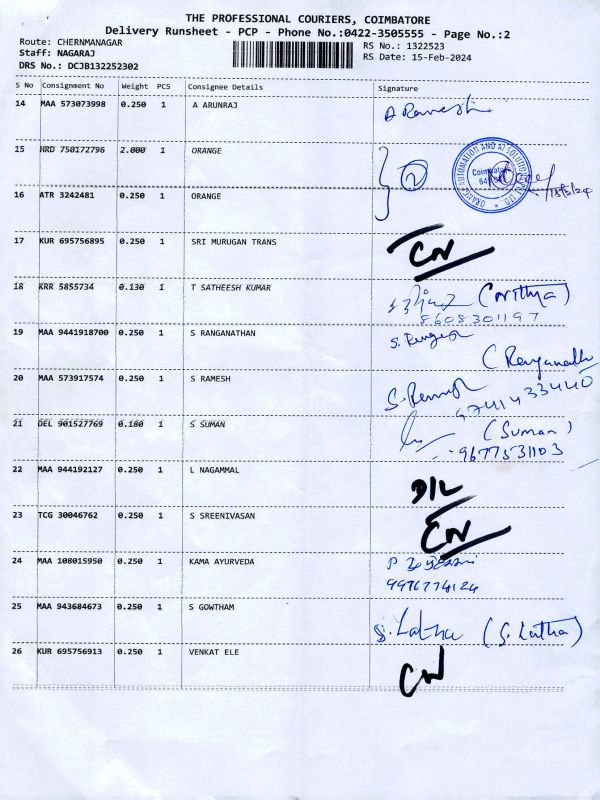 THE PROFESSIONAL COURIERS, COIMBATORE
Delivery Runsheet - PCP - Phone No.:0422-3505555 - Page No.:2
Route: CHERNMANAGAR
RS No.: 1322523
Staff: NAGARAJ
RS Date: 15-Feb-2024
DRS No.: DCJB132252302
S No Consignment No Weight PCS Consignee Details Signature
14 MAA 573073998 0.250 1 A ARUNRAJ A Ramesh
15 HRD 750172796 2.000 1 ORANGE 2
ORANGE AUTOMATION AND AI SOLUTION PVT LTD. Coimbatore
16 ATR 3242481 0.250 1 ORANGE
17 KUR 695756895 0.250 1 SRI MURUGAN TRANS CN
18 KRR 5855734 0.130 1 T SATHEESH KUMAR (Nithya)
8608301197
19 MAA 9441918700 0.250 1 S RANGANATHAN
20 MAA 573917574 0.250 1 S RAMESH S. Ramesh
9741433440
21 DEL 901527769 0.180 1 S SUMAN (Suman)
9677531103
22 MAA 944192127 0.250 1 L NAGAMMAL D/L
23 TCG 30046762 0.250 1 S SREENIVASAN CN
24 MAA 108015950 0.250 1 KAMA AYURVEDA
9976774124
25 MAA 943684673 0.250 1 S GOWTHAM S. Latha (S. Latha)
26 KUR 695756913 0.250 1 VENKAT ELE CN